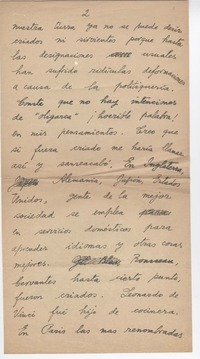 2
nuestra tierra ya no se puede decir
criados ni sirvientes porque hasta
las designaciones usuales
han sufrido ridículas deformaciones
a causa de la politiquería.
Conste que no hay intenciones
de "oligarca" ¡horrible palabra!
en mis pensamientos. Creo que
si fuera criado me haría llamar
así y sanseacabó. En Inglaterra,
Alemania, Japón, Estados
Unidos, gente de la mejor
sociedad se emplea
en servicios domésticos para
aprender idiomas y otras cosas
mejores. Rousseau,
Cervantes hasta cierto punto,
fueron criados. Leonardo de
Vinci fué hijo de cocinera.
En París las mas renombradas